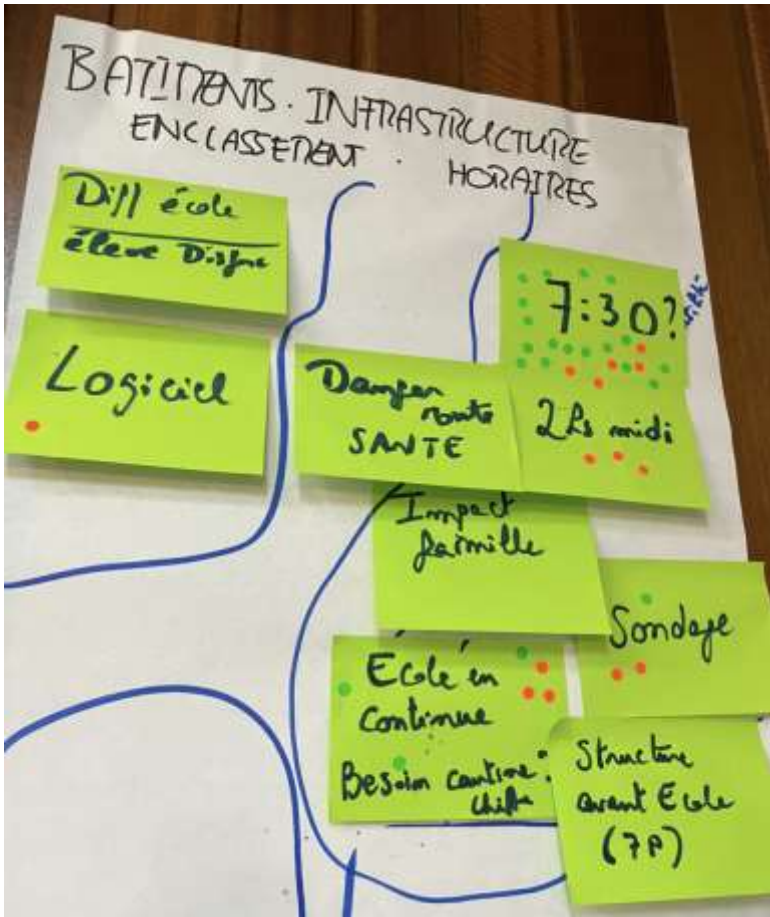 BATIMENTS. INFRASTRUCTURE
ENCLASSEMENT. HORAIRES
Diff école
élève
Logiciel
7:30?
Danger
route
SANTE
2hs midi
Impact
famille
Sondage
École en
Continue
Besoin cantine:
chiffre
Structure
avant Ecole
(7P)